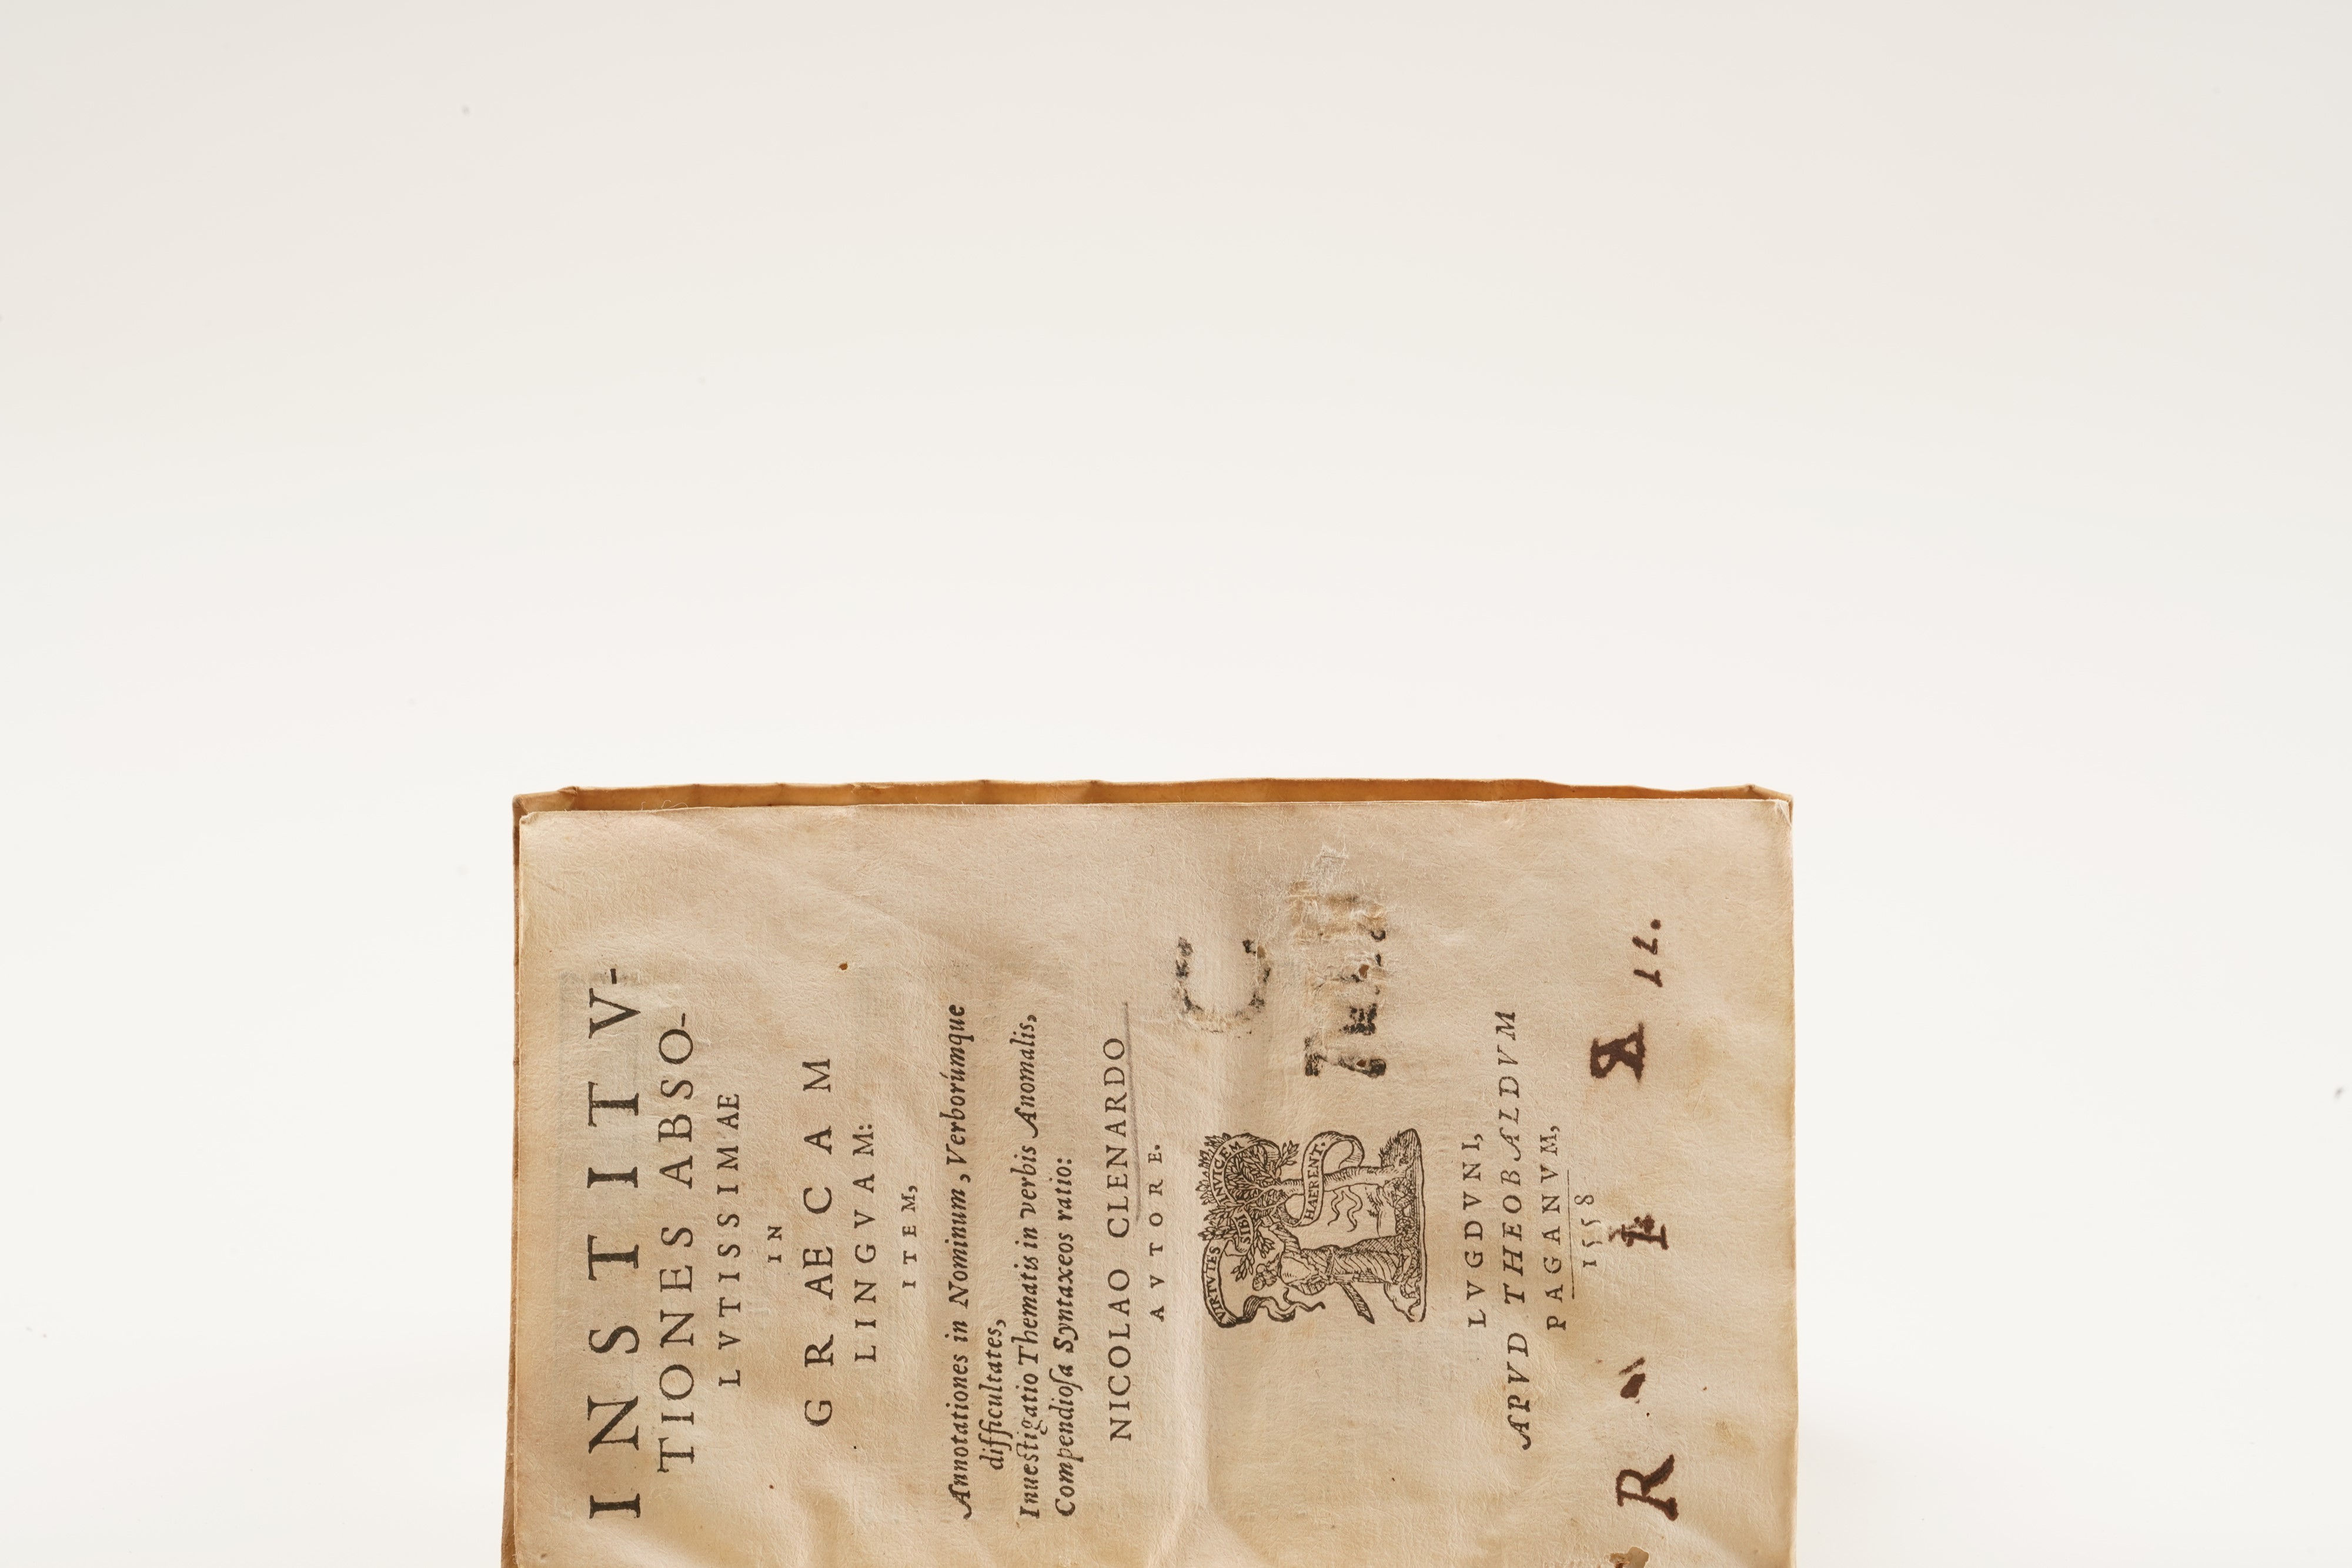 INSTITV-
TIONES ABSO-
LVTISSIMAE
IN
GRAECAM
LINGVAM:
ITEM,
Annotationes in Nominum, Verborúmque
difficultates,
Inuestigatio Thematis in verbis Anomalis,
Compendioſa Syntaxeos ratio:
NICOLAO CLENARDO
AVTORE.
VIRTVTES
SIBI INVICEM
HAERENT.
LVGDVNI,
APVD THEOBALDVM
PAGANVM,
1558